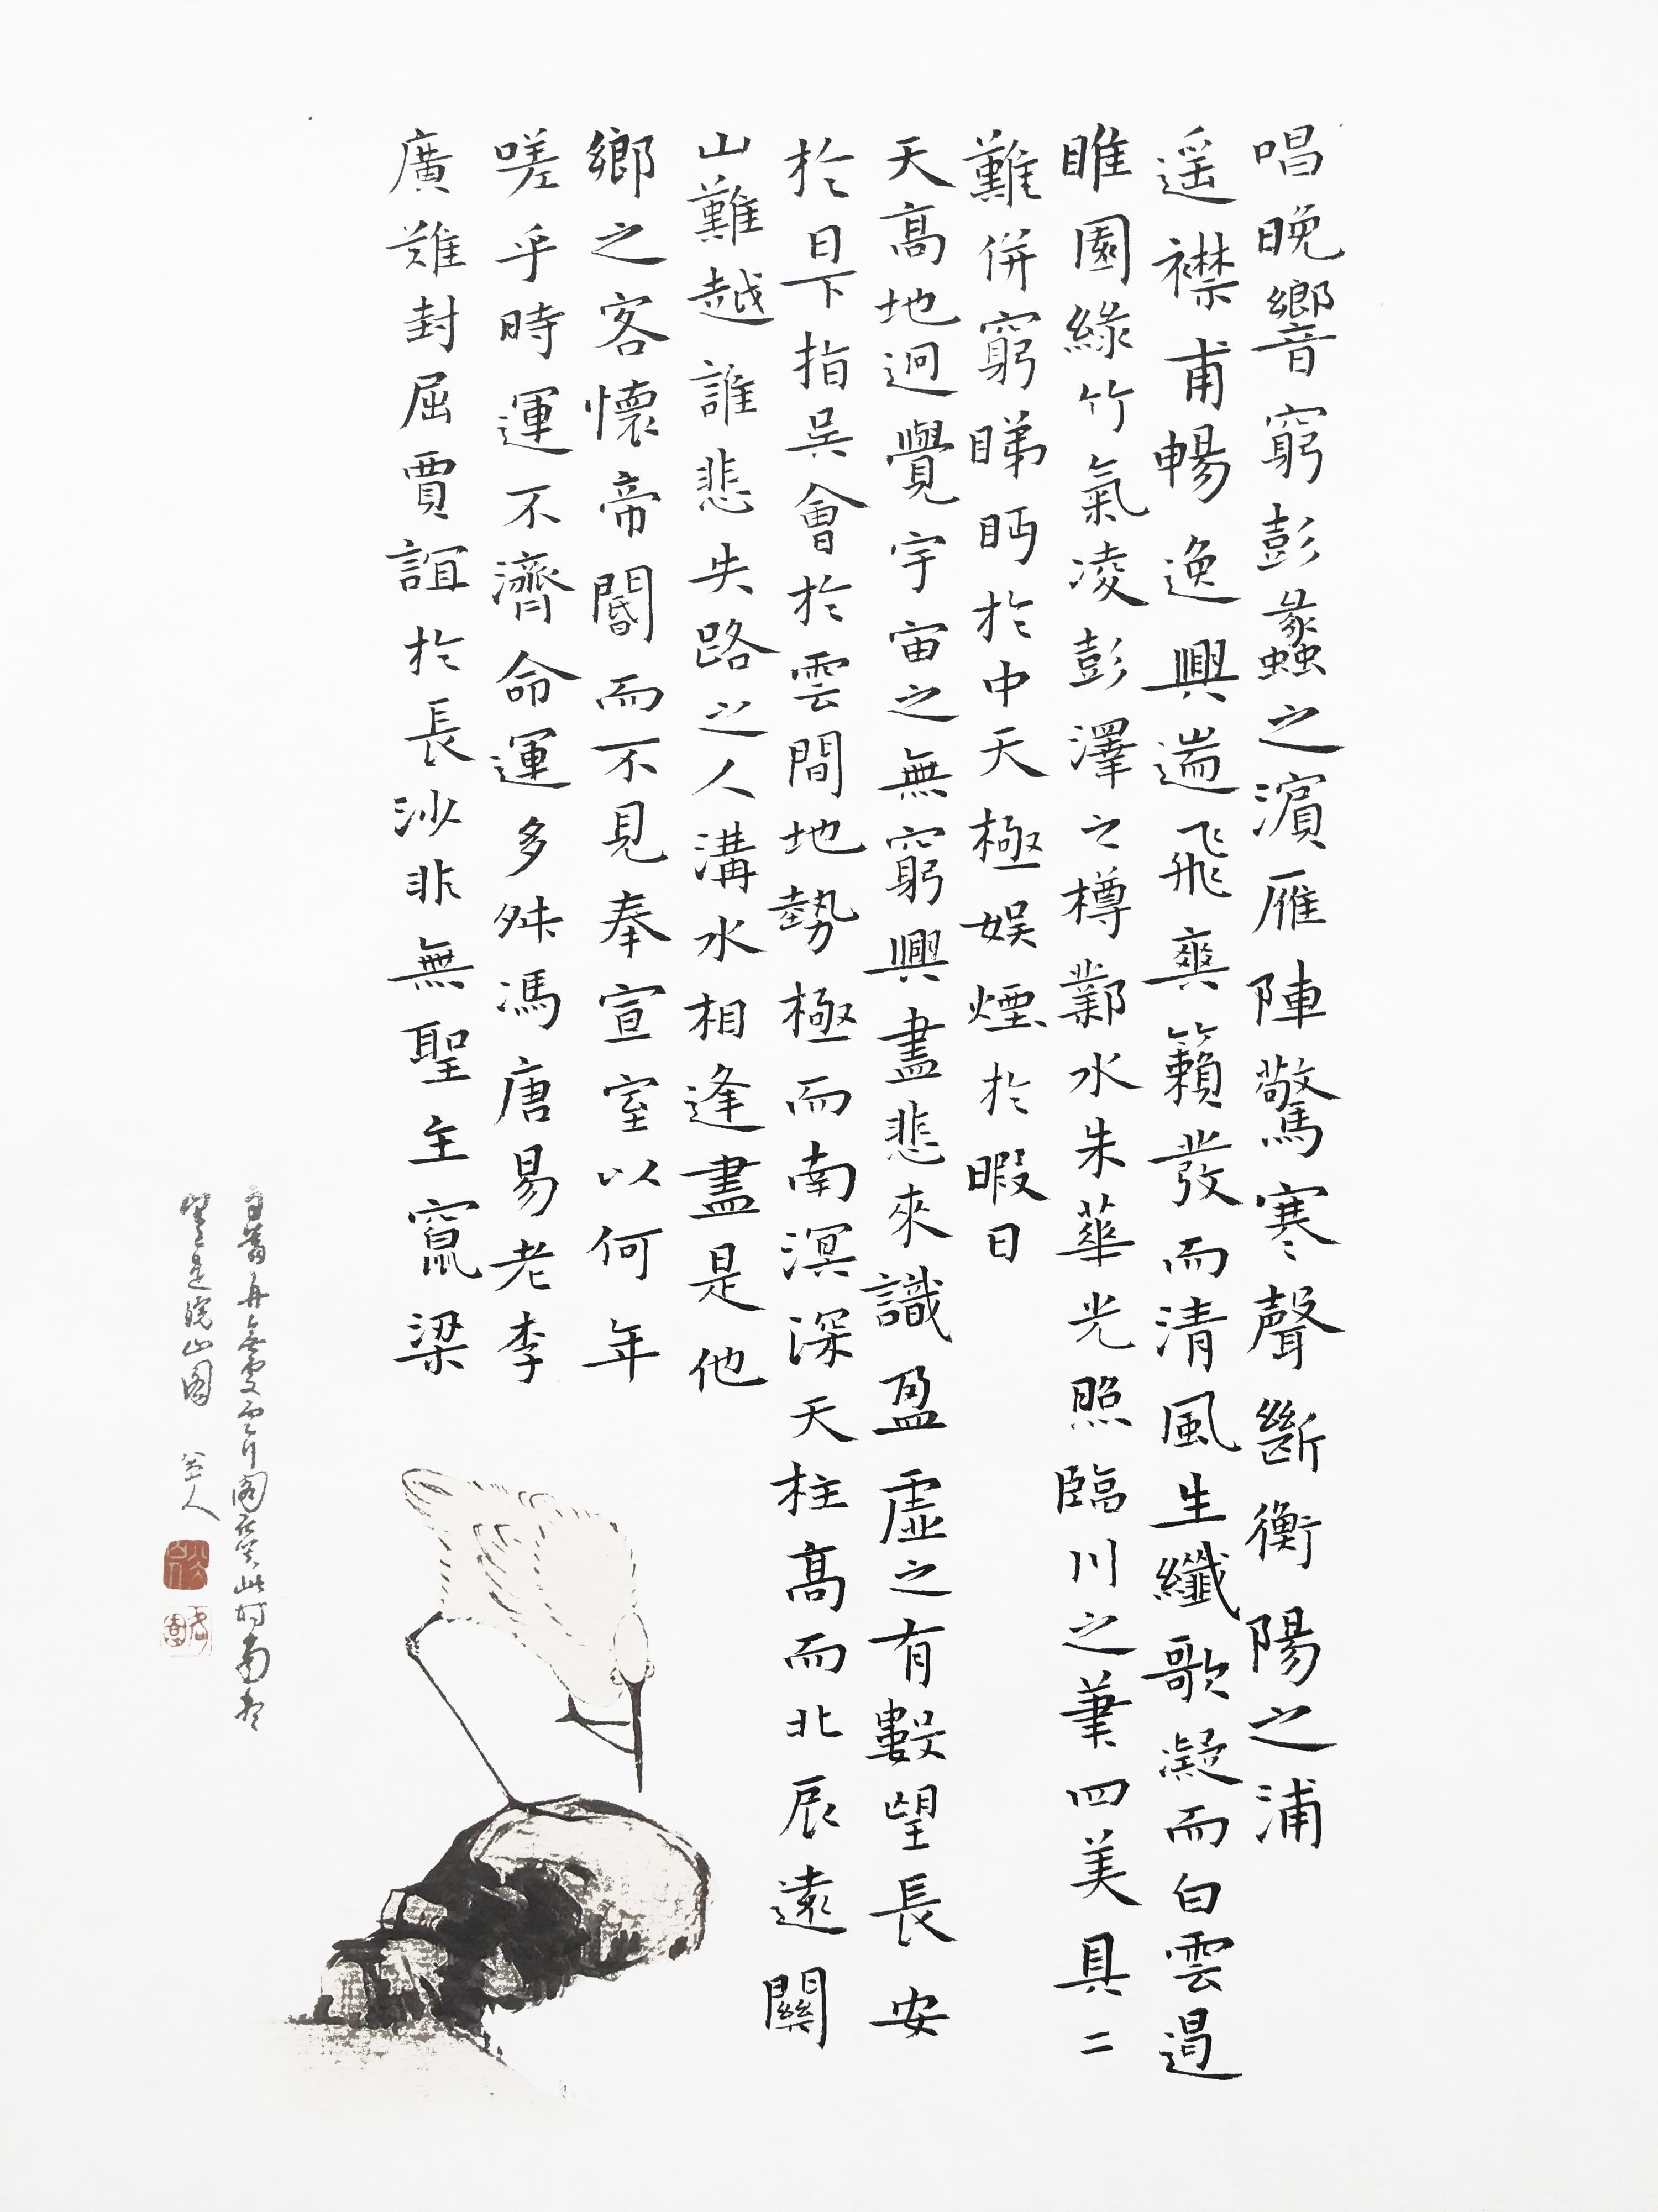 唱晚響窮彭蠡之濱雁陣驚寒聲斷衡陽之浦
遥襟甫暢逸興遄飛爽籟發而清風生纖歌凝而白雲遏
睢園綠竹氣凌彭澤之樽鄴水朱華光照臨川之筆四美具二
難併窮睇眄於中天極娱煙於暇日
天高地迥覺宇宙之無窮興盡悲來識盈虛之有數望長安
於日下指吴會於雲間地勢極而南溟深天柱高而北辰遠關
山難越誰悲失路之人溝水相逢盡是他
鄉之客懷帝閽而不見奉宣室以何年
嗟乎時運不濟命運多舛馮唐易老李
廣難封屈賈誼於長沙非無聖主竄梁
此時南
望是 山圖 八大山人